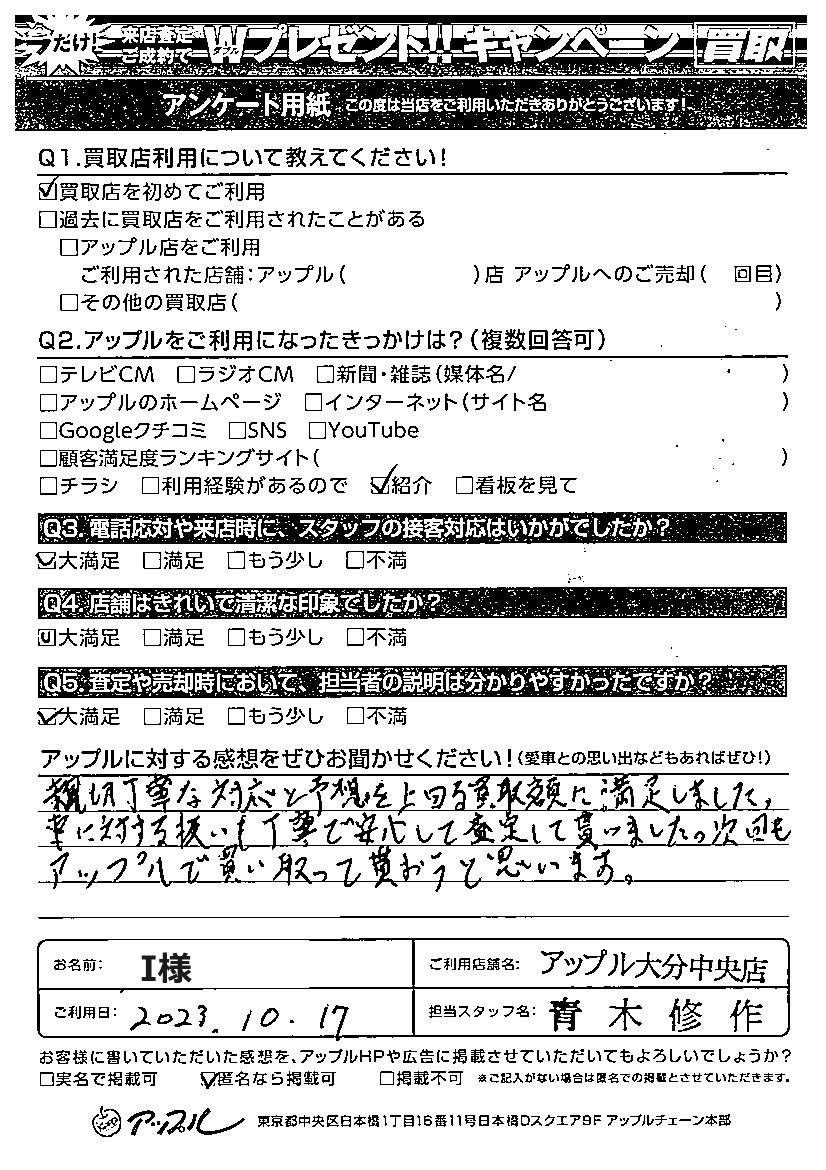 だけ! 来店査定ご成約で Wダブルプレゼント!! キャンペーン 買取
アンケート用紙 この度は当店をご利用いただきありがとうございます!
Q1.買取店利用について教えてください!
☑買取店を初めてご利用
□過去に買取店をご利用されたことがある
□アップル店をご利用
ご利用された店舗:アップル( )店 アップルへのご売却( 回目)
□その他の買取店( )
Q2.アップルをご利用になったきっかけは?(複数回答可)
□テレビCM □ラジオCM □新聞・雑誌(媒体名/ )
□アップルのホームページ □インターネット(サイト名 )
□Googleクチコミ □SNS □YouTube
□顧客満足度ランキングサイト( )
□チラシ □利用経験があるので ☑紹介 □看板を見て
Q3. 電話応対や来店時に、スタッフの接客対応はいかがでしたか?
☑大満足 □満足 □もう少し □不満
Q4. 店舗はきれいで清潔な印象でしたか?
☑大満足 □満足 □もう少し □不満
Q5. 査定や売却時において、担当者の説明は分かりやすかったですか?
☑大満足 □満足 □もう少し □不満
アップルに対する感想をぜひお聞かせください!(愛車との思い出などもあればぜひ!)
親切丁寧な対応と予想を上回る買取額に満足しました。
車に対する扱いも丁寧で安心して査定して貰いました。次回も
アップルで買い取って貰おうと思います。
お名前: I様 ご利用店舗名: アップル大分中央店
ご利用日: 2023.10.17 担当スタッフ名: 青木修作
お客様に書いていただいた感想を、アップルHPや広告に掲載させていただいてもよろしいでしょうか?
□実名で掲載可 ☑匿名なら掲載可 □掲載不可 ※ご記入がない場合は匿名での掲載とさせていただきます。
アップル 東京都中央区日本橋1丁目16番11号日本橋Dスクエア9F アップルチェーン本部